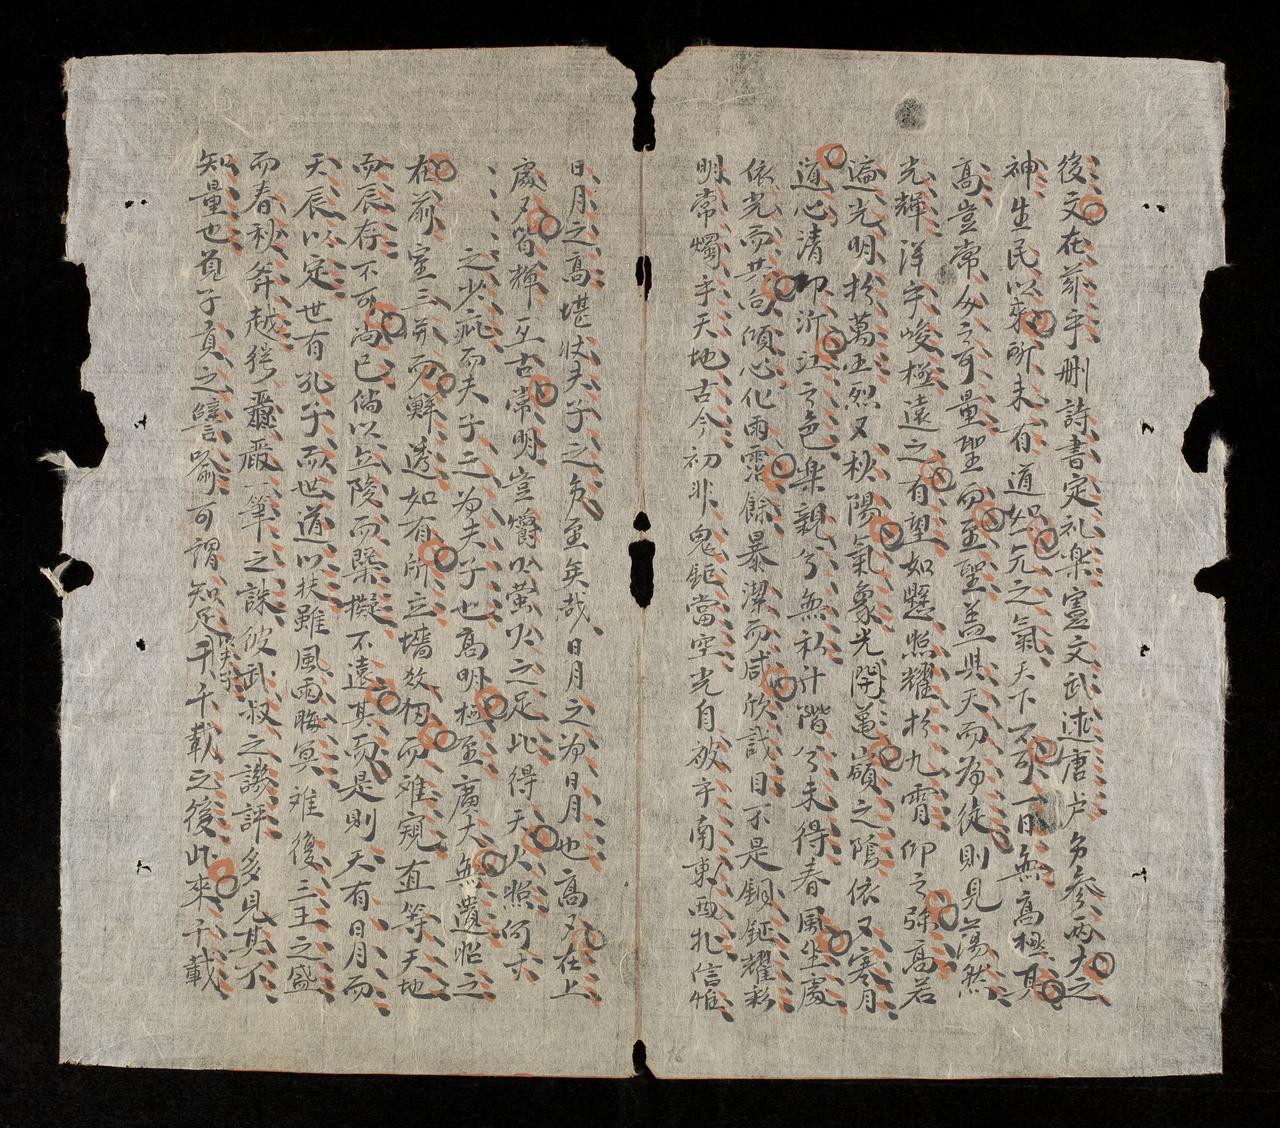 後文在兹乎删詩書定礼樂憲文武述唐卢多參两大之
神生民以來所未有道如元之氣天下不可一日無高極其
高豈常人之可量聖而至聖盖與天而為徒則見蕩然
光輝洋乎峻極遠之有望如懸照耀於九霄仰之弥高若
遍光明於萬丘烈又秋陽氣象光開亀嶺之隂依又寒月
道心清卬沂江之色楽親兮無私汁階兮未得春風坐處
依光而共向傾心化雨霑餘暴潔而咸欣戢目不是銅鉦耀彩
明常燭乎天地古今初非鬼鉅當空光自被乎南東西北信惟
日月之高堪状夫子之多至矣哉日月之為日月也高又在上
處又宿輝亙古常明豈爝以萤火之足比得天人照何求
之少疵而夫子之為夫子也高明極至廣大無遺昭之
在前室三并而鮮透如有所立墻数仞而难窺直等天地
而辰存不可尚已倘以丘陵而槩擬不遠其而是則天有日月而
天辰以定世有孔子而世道以扶雖風雨晦冥难復三王之盛
而春秋斧越猶嚴一筆之誅彼武叔之譏評多見其不
知量也首子貢之譬喻可謂知足千千載之後此來子載